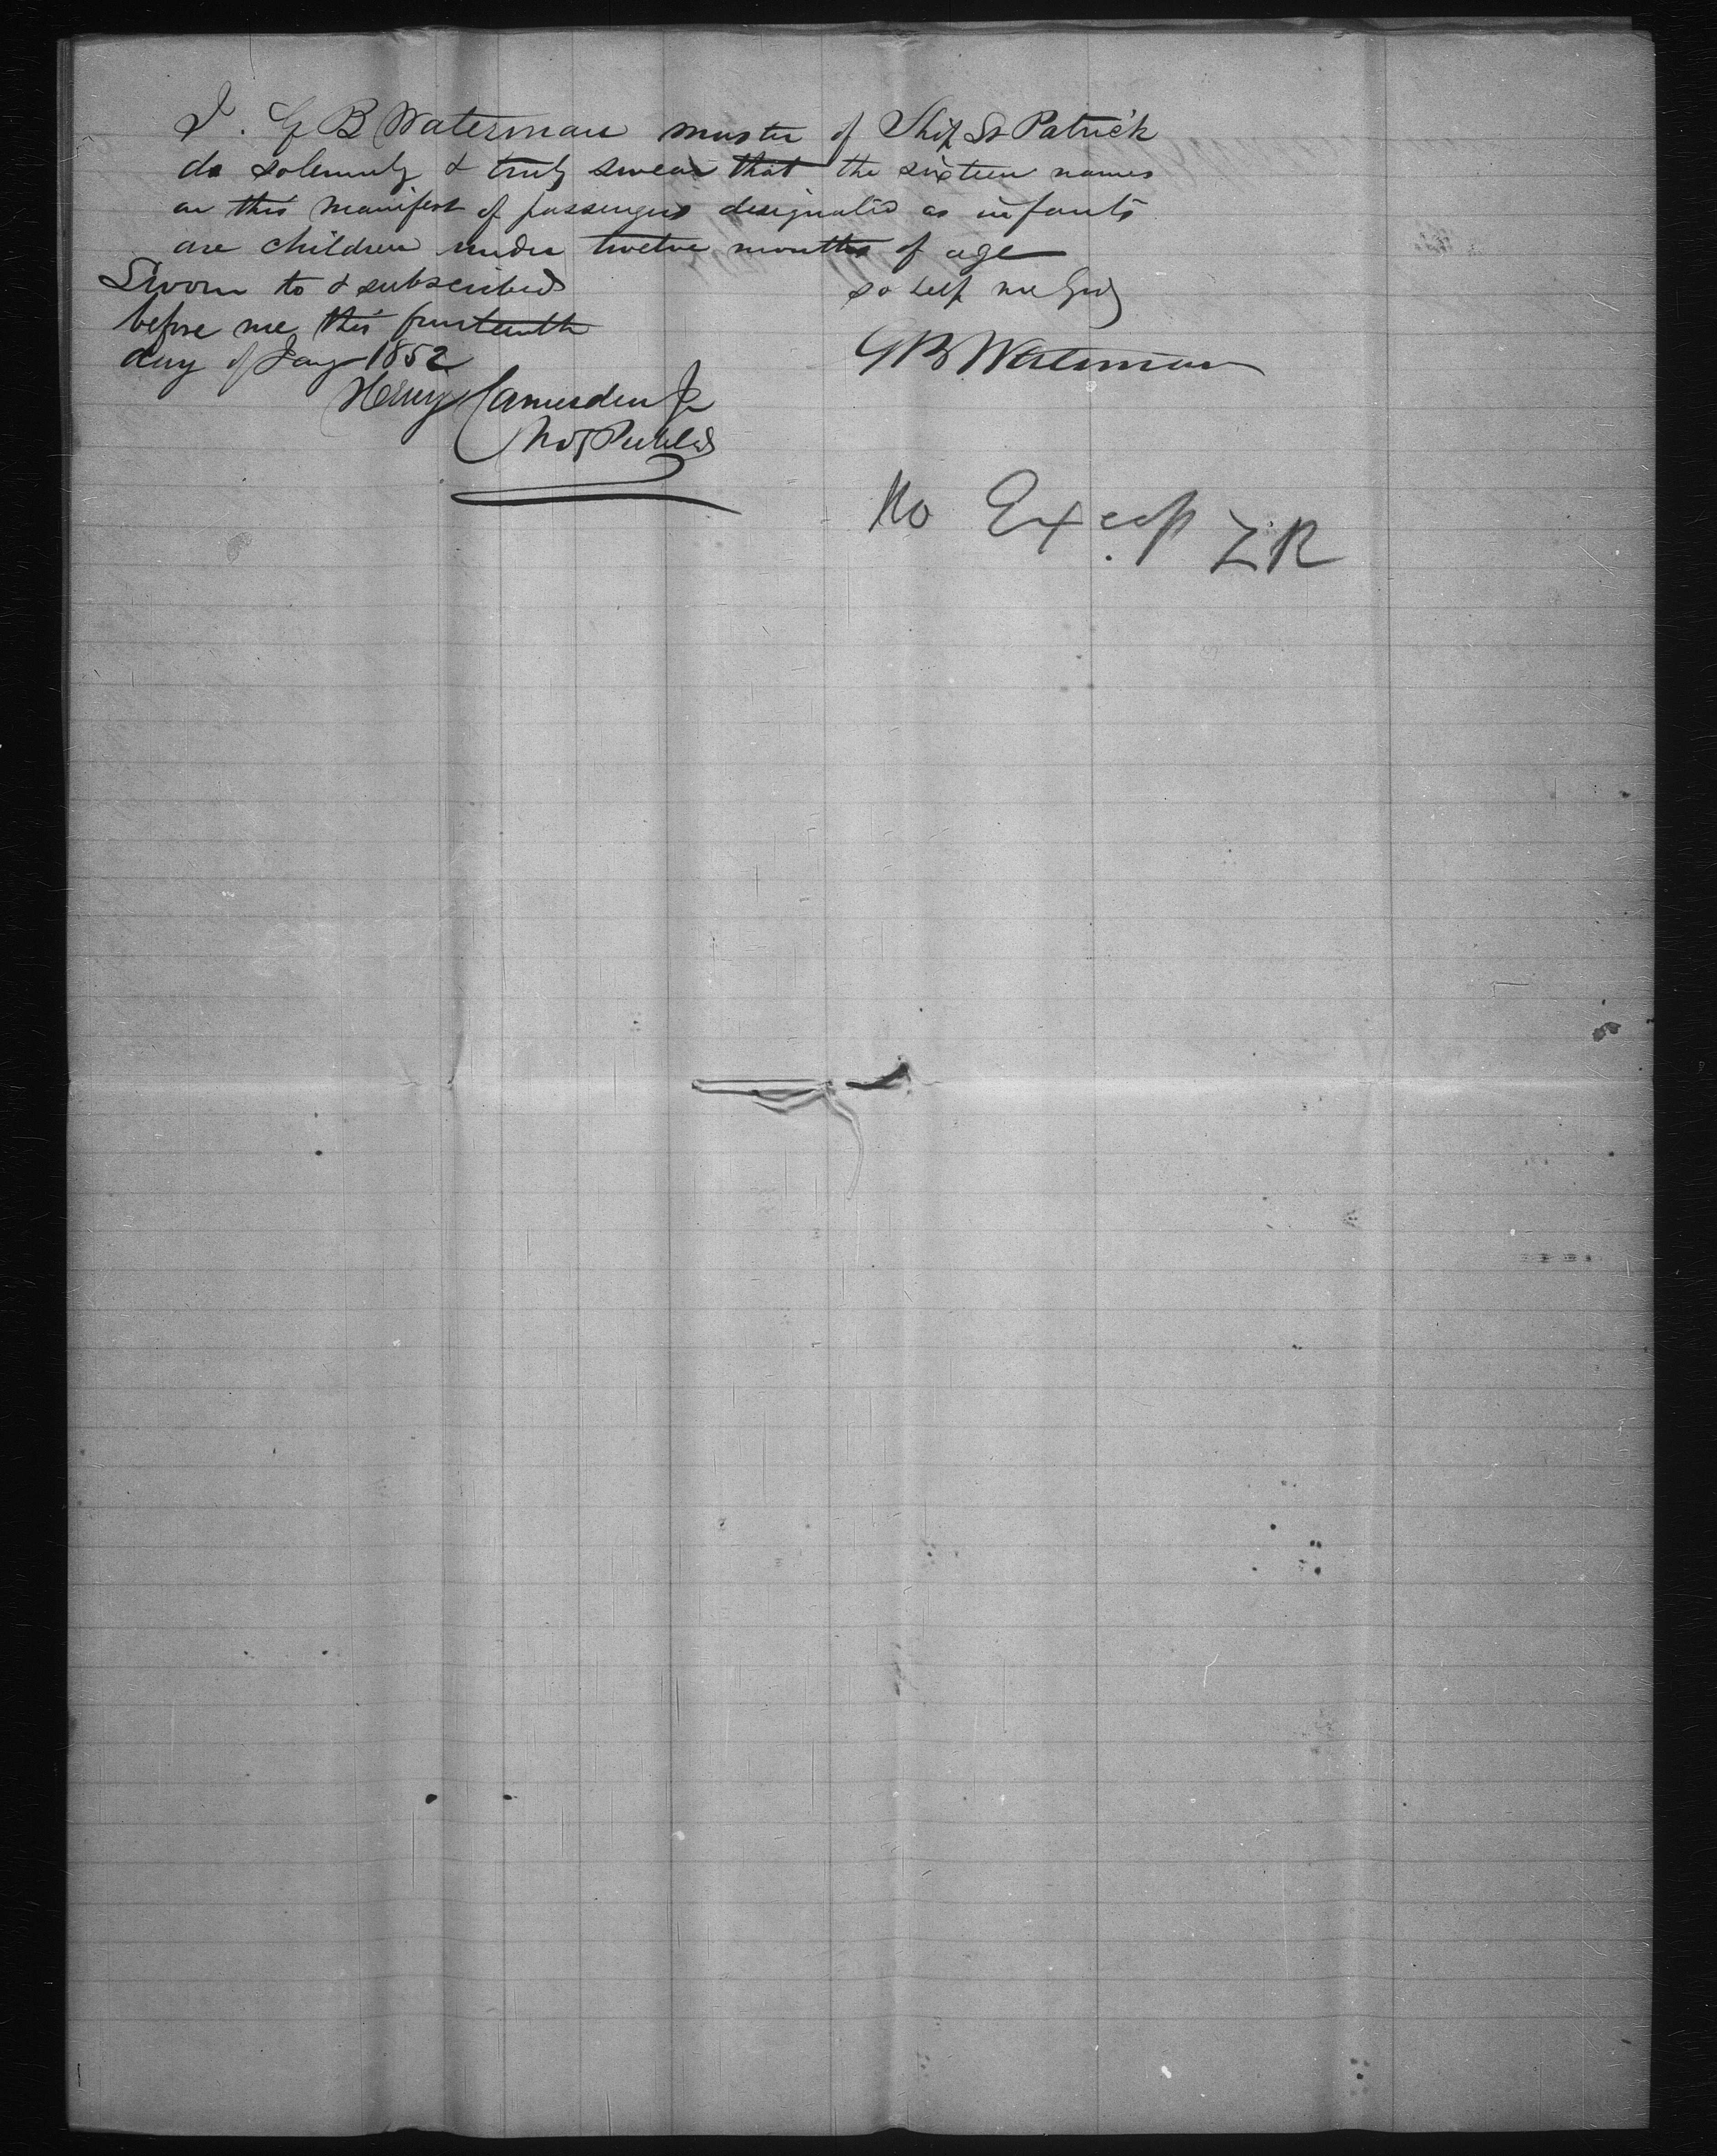 I. G B Waterman master of Ship St Patrick
do solemnly & truly swear that the sixteen names
on this manifest of passengers designated as infants
are children under twelve months of age
so help me God
G B Waterman
Sworn to & subscribed
before me this fourteenth
day of Jany 1852
Henry Jr
Not Public
No Excep ZR